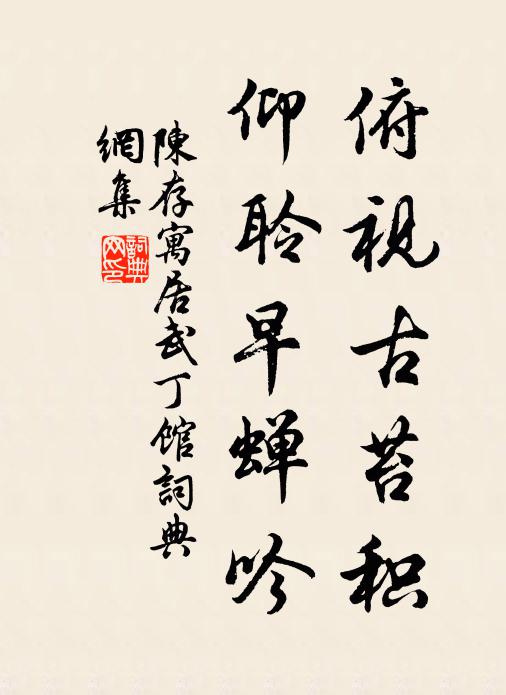 俯視古苔积
仰聆早蝉吟
陳存寓居武丁館詞典
網集
詞典网印